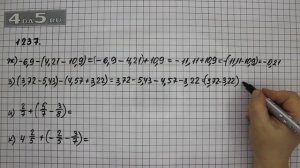 4DS.ru
1237.
ж) -6,9-(4,21-10,9)=(-6,9-4,21)+10,9=-11,11+10,9=-(11,11-10,9)=-0,21
з) (3,72-5,43)-(4,57+3,22)=3,72-5,43-4,57-3,22=(3,72-3,22)
и) 2/7+(5/7-3/8)=
к) 4 2/5+(-2/5-3/7)=